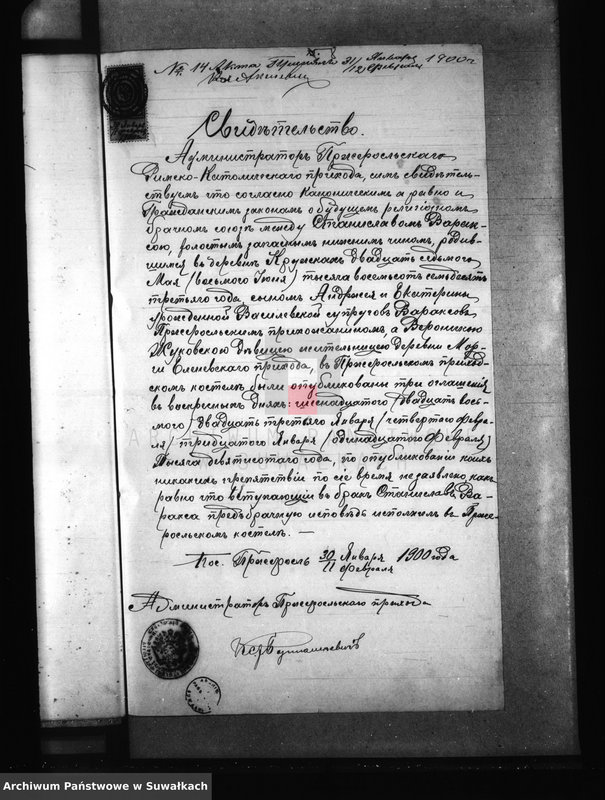 № 14 Акта 31/12 Января Февраля 1900 г.
Свидѣтельство.
Администраторъ Пржеросльскаго
Римско-Католическаго прихода, симъ свидѣтель-
ствуетъ что согласно каноническимъ а равно и
Гражданскимъ законамъ о будущемъ религіозномъ
брачномъ союзѣ между Станиславомъ Варак-
сою, холостымъ запаснымъ нижнимъ чиномъ, родив-
шимся въ деревнѣ двадцать седьмого
Мая /восьмого Іюня/ тысяча восемьсотъ семьдесятъ
третьяго года, сыномъ Андрыея и Екатерины
урожденной Василевской супруговъ Вараксовъ
Пржеросльскимъ прихожаниномъ, а Вероникою
Жуковскою дѣвицею жительницею деревни Мор-
ги прихода, въ Пржеросльскомъ приход-
скомъ костелѣ были опубликованы три оглашенія
въ воскресныхъ дняхъ: шеснадцатого /двадцать вось-
мого/ двадцать третьяго Января /четвертаго Февра-
ля/ тридцатого Января /одинадцатого Февраля/
тысяча девятисотаго года, по опубликованіи коихъ
никакихъ препятствій по сіе время не заявлено, какъ
равно что вступающій въ бракъ Станиславъ Ва-
ракса предбрачную исповѣдь исполнилъ въ Прже-
росльскомъ костелѣ. —
Пос. Пржеросль 30/11 Января Февраля 1900 года
Администраторъ Пржеросльскаго прихода
Archiwum Państwowe w Suwałkach